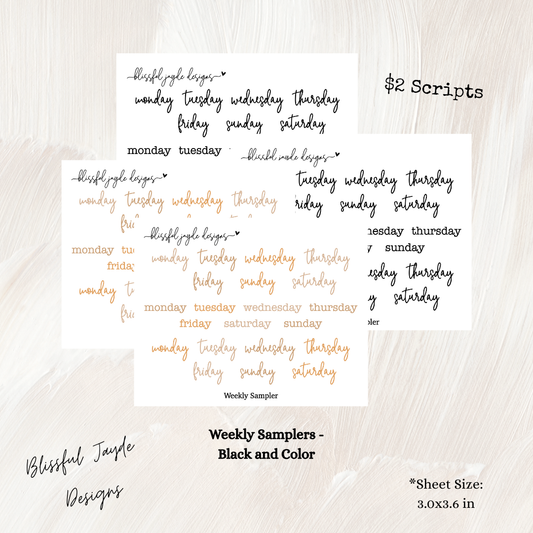 blissful jayde designs
monday tuesday wednesday thursday
friday sunday saturday
monday tuesday
$2 Scripts
blissful jayde designs
tuesday wednesday thursday
friday sunday saturday
thursday
sunday
wednesday thursday
sunday saturday
blissful jayde designs
monday tuesday wednesday thursday
monday
friday
monday
blissful jayde designs
monday tuesday wednesday thursday
friday sunday saturday
monday tuesday wednesday thursday
friday saturday sunday
monday tuesday wednesday thursday
friday sunday saturday
Weekly Sampler
Weekly Samplers -
Black and Color
Blissful Jayde
Designs
*Sheet Size:
3.0x3.6 in